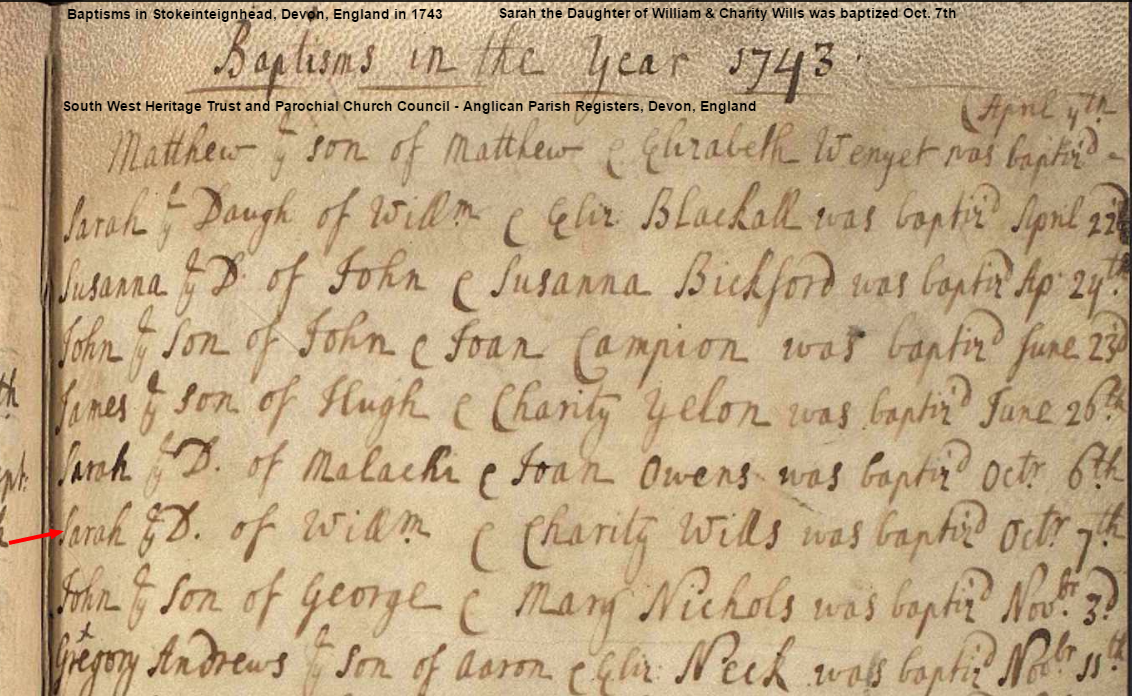 Baptisms in Stokeinteignhead, Devon, England in 1743 Sarah the Daughter of William & Charity Wills was baptized Oct. 7th
Baptisms in the Year 1743
South West Heritage Trust and Parochial Church Council - Anglican Parish Registers, Devon, England
(April 4th
Matthew ye son of Matthew & Elizabeth Wenyet was baptiz'd
Sarah ye Daugh of Willm & Eliz Blackall was baptiz'd April 22d
Susanna ye D. of John & Susanna Bickford was baptiz'd Ap 24th
John ye son of John & Joan Campion was baptiz'd June 23d
James ye son of Hugh & Charity Yelon was baptiz'd June 26th
Sarah ye D. of Malachi & Joan Owens was baptiz'd Octr 6th
Sarah ye D. of Willm & Charity Wills was baptiz'd Octr 7th
John ye son of George & Mary Nichols was baptiz'd Novbr 3d
Gregory Andrews ye son of Aaron & Eliz: Neck was baptiz'd Novbr 11th